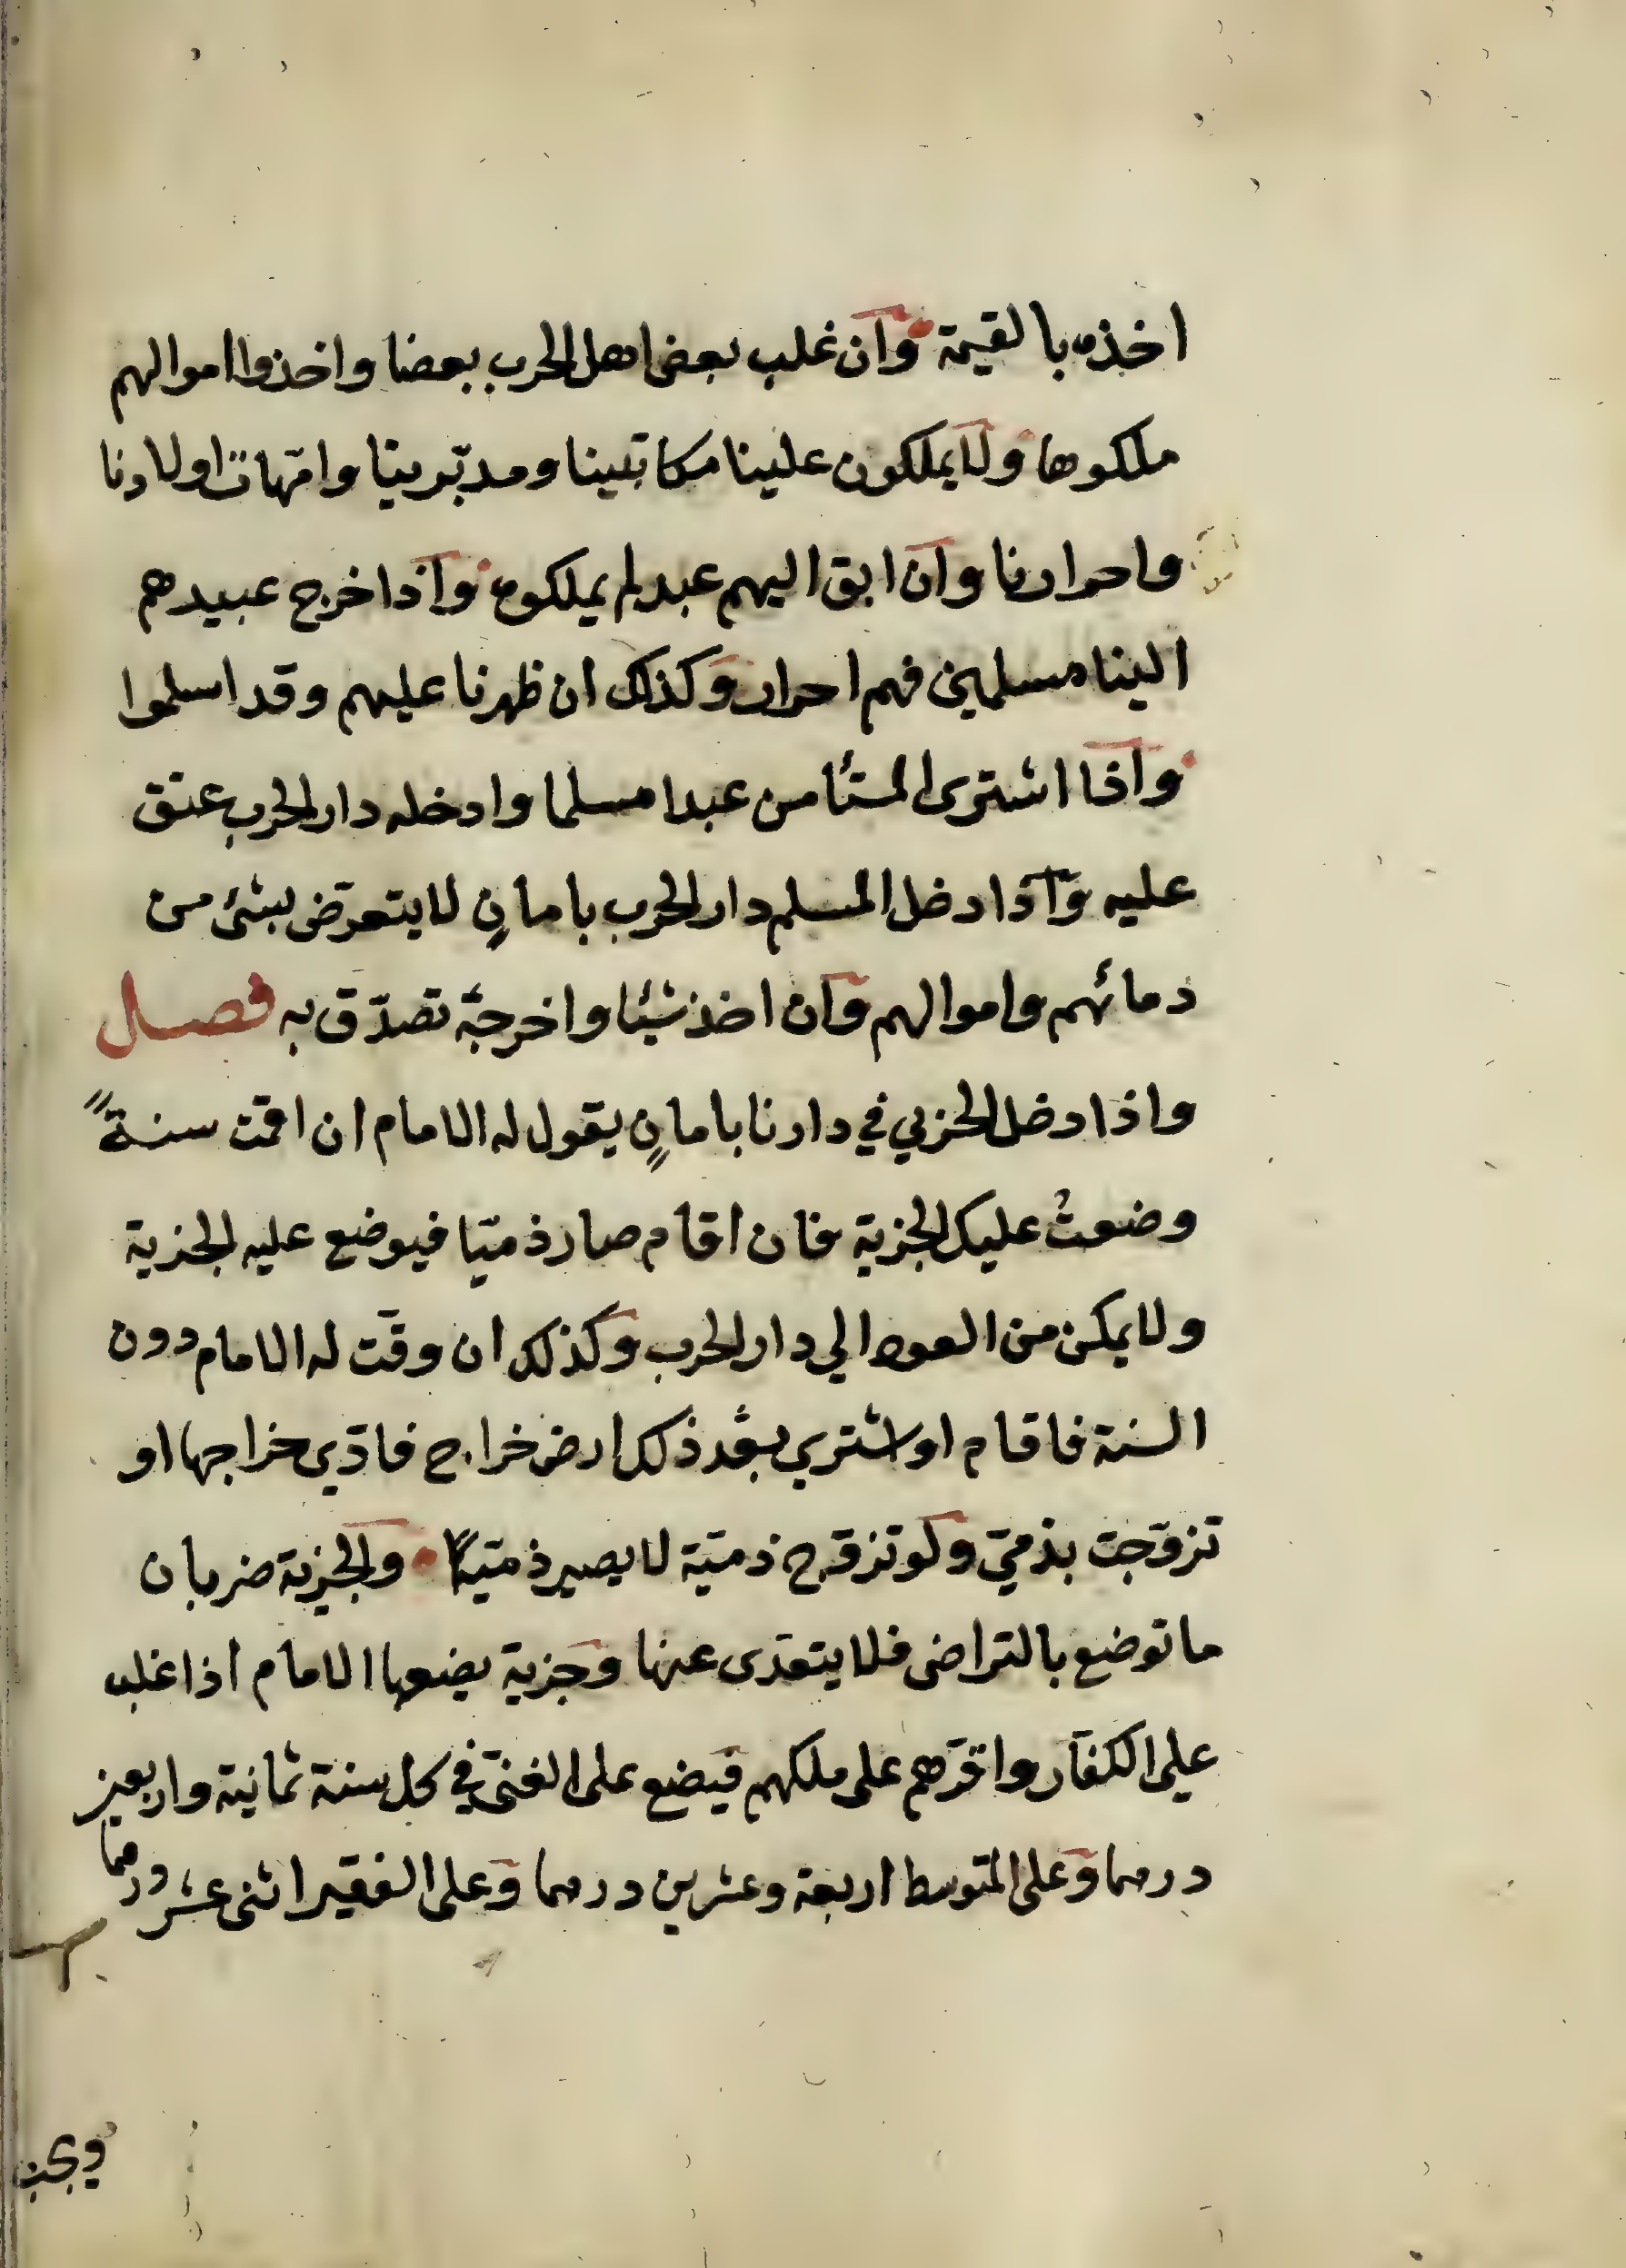 اخذه بالقيمة وان غلب بعض اهل الحرب بعضا واخذوا اموالهم
ملكوها ولا يملكون علينا مكاتبينا ومدبّرينا وامّهات اولادنا
واحرارنا وان ابق اليهم عبد لم يملكوه واذا خرج عبيدهم
الينا مسلمين فهم احرار وكذلك ان ظهرنا عليهم وقد اسلموا
واذا اشترى المستأمن عبدا مسلما وادخله دار الحرب عتق
عليه واذا دخل المسلم دار الحرب بامانٍ لا يتعرّض بشئ من
دمائهم واموالهم وان اخذ شيئا واخرجه تصدّق به فصل
واذا دخل الحربي في دارنا بامانٍ يقول له الامام ان اقمت سنةً
وضعتُ عليك الجزية فان اقام صار ذميّا فيوضع عليه الجزية
ولا يمكن من العود الي دار الحرب وكذلك ان وقّت له الامام دون
السنة فاقام او اشتري بعد ذلك ارض خراج فادّي خراجها او
تزوّجت بذمّيّ ولو تزوّج ذميّة لا يصير ذميّاً والجزية ضربان
ما توضع بالتراضى فلا يتعدّى عنها وجزية يضعها الامام اذا غلب
على الكفّار واقرّهم على ملكهم فيضع على الغنىّ في كل سنة ثمانية واربعين
درهما وعلى المتوسط اربعة وعشرين درهما وعلى الفقير اثنى عشر درهما
ويجب